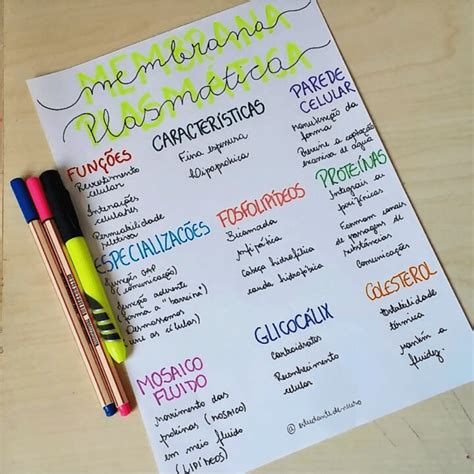 MEMBRANA
PLASMÁTICA
membrana
Plasmática
FUNÇÕES
Revestimento
celular
Interações
celulares
Permeabilidade
seletiva
CARACTERÍSTICAS
Fina espessura
lipoproteica
PAREDE
CELULAR
manutenção da
forma
Previne a captação
excessiva de água
ESPECIALIZAÇÕES
Junção GAP
(comunicação)
Junção aderente
(forma a "barreira")
Desmossomos
(une as células)
FOSFOLIPÍDEOS
Bicamada
anfipática
Cabeça hidrofílica
cauda hidrofóbica
PROTEÍNAS
Integrais ou
periféricas
Formam canais
de passagem de
substâncias
Comunicações
MOSAICO
FLUIDO
movimento das
proteínas (MOSAICO)
em meio fluido
(LIPÍDEOS)
GLICOCÁLIX
Carboidratos
Reconhecimento
celular
COLESTEROL
Estabilidade
térmica
mantém a
fluidez.